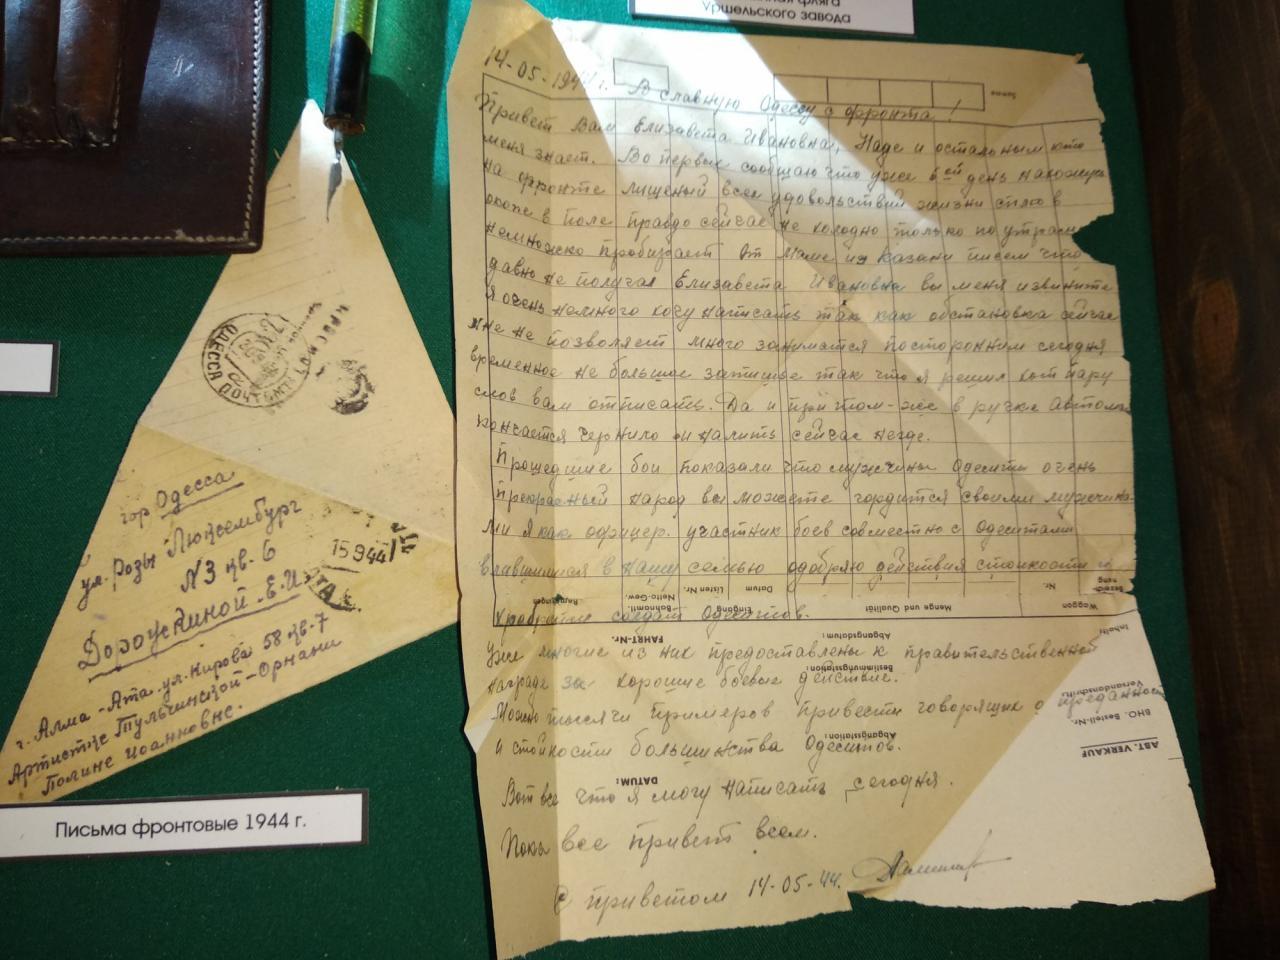 фляга
Уршельского завода
14-05-1944 г. В славную Одессу с фронта!
Привет Вам Елизавета Ивановна, Наде и остальным кто
меня знает. Во первых сообщаю что уже 6ой день нахожусь
на фронте лищеный всех удовольствий жизни сплю в
окопе в поле правдо сейчас не холодно только по утрам
немножко пробирает От мамы из Казани писем что
давно не получал Елизавета Ивановна вы меня извините
я очень немного хочу написать так как обстановка сейчас
мне не позволяет много заниматся посторонним сегодня
временное не большое затишье так что я решил хот пару
слов вам отписать. Да и притом-же в ручке автомат
кончается чернило и налить сейчас негде.
Прошедшие бои показали что мужчины Одеситы очень
прекрасный народ вы можете гордится своими мужчина-
ми я как офицер. участник боев совместно с Одеситами
влившимися в нашу семью одобряю действия стойкости и
Bezeich-
nung
Nr.
Waggon
Menge und Qualität
Datum
Eingang
Listen Nr.
Bahnamtl.
Netto-Gew.
храбрости солдат Одеситов.
FAHRT-Nr.
Abgangsdatum:
Уже многие из них предоставлены к правительственной
Bestimmungsstation:
награде за хорошие боевые действие.
Можно тысячи примеров привести говорящих о преданност
Abgangsstation:
и стойкости большинства Одеситов.
DATUM:
Inhalt:
Versandanschrift:
BHO. Bestell-Nr.
ABT. VERKAUF
Вот все что я могу написать сегодня.
Пока все привет всем.
С приветом 14-05-44.
ОДЕССА
гор Одесса
ул. Розы Люксембург
N3 кв. 6
Дорошкиной Е.И.
15 9 44
г. Алма-Ата ул. Кирова 58 кв. 7
Артистке Тульчинской-Орнани
Полине Иоанновне.
Письма фронтовые 1944 г.